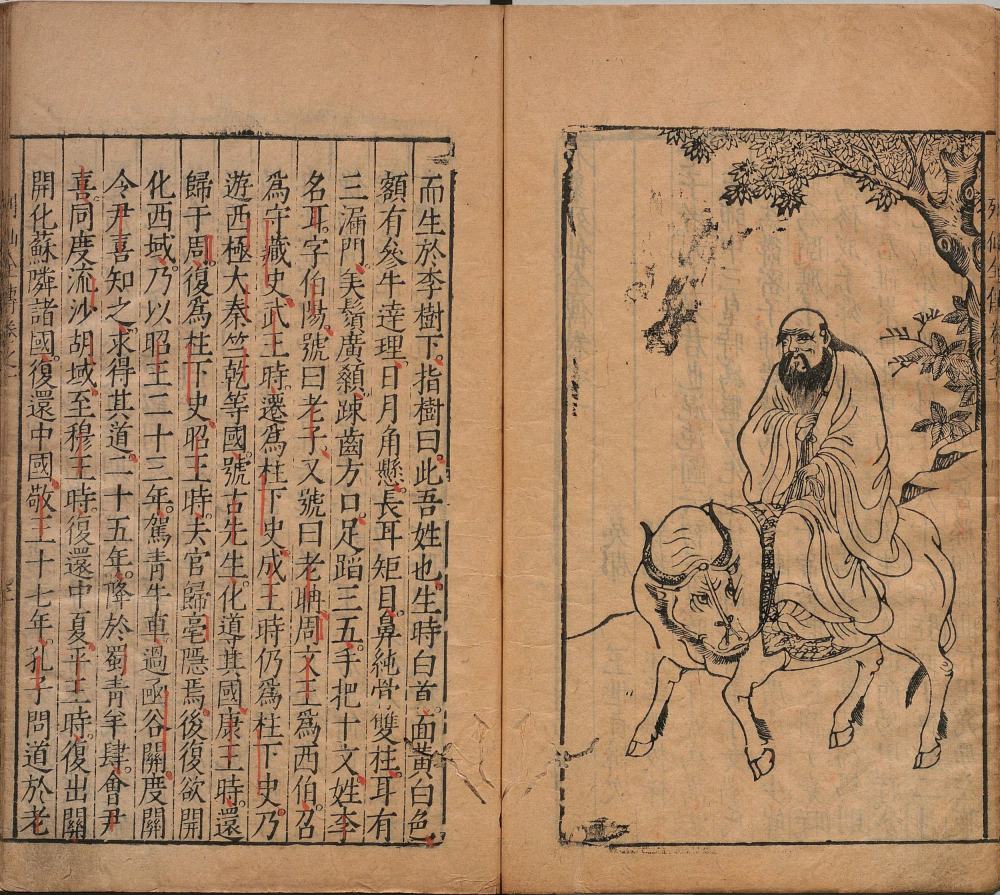 而生於李樹下。指樹曰。此吾姓也。生時白首。面黃白色
額有參牛達理。日月角懸。長耳矩目。鼻純骨雙柱。耳有
三漏門。美鬚廣顙。踈齒方口。足蹈三五。手把十文。姓李
名耳。字伯陽。號曰老子。又號曰老聃。周文王爲西伯。召
爲守藏史。武王時。遷爲柱下史。成王時仍爲柱下史。乃
遊西極大秦竺乾等國。號古先生。化道其國。康王時。還
歸于周。復爲柱下史。昭王時。去官歸亳隱焉。後復欲開
化西域。乃以昭王二十三年。駕青牛車。過函谷關。度關
令尹喜知之。求得其道。二十五年。降於蜀青羊肆。會尹
喜。同度流沙胡域。至穆王時。復還中夏。平王時。復出關
開化蘇隣諸國。復還中國。敬王十七年。孔子問道於老